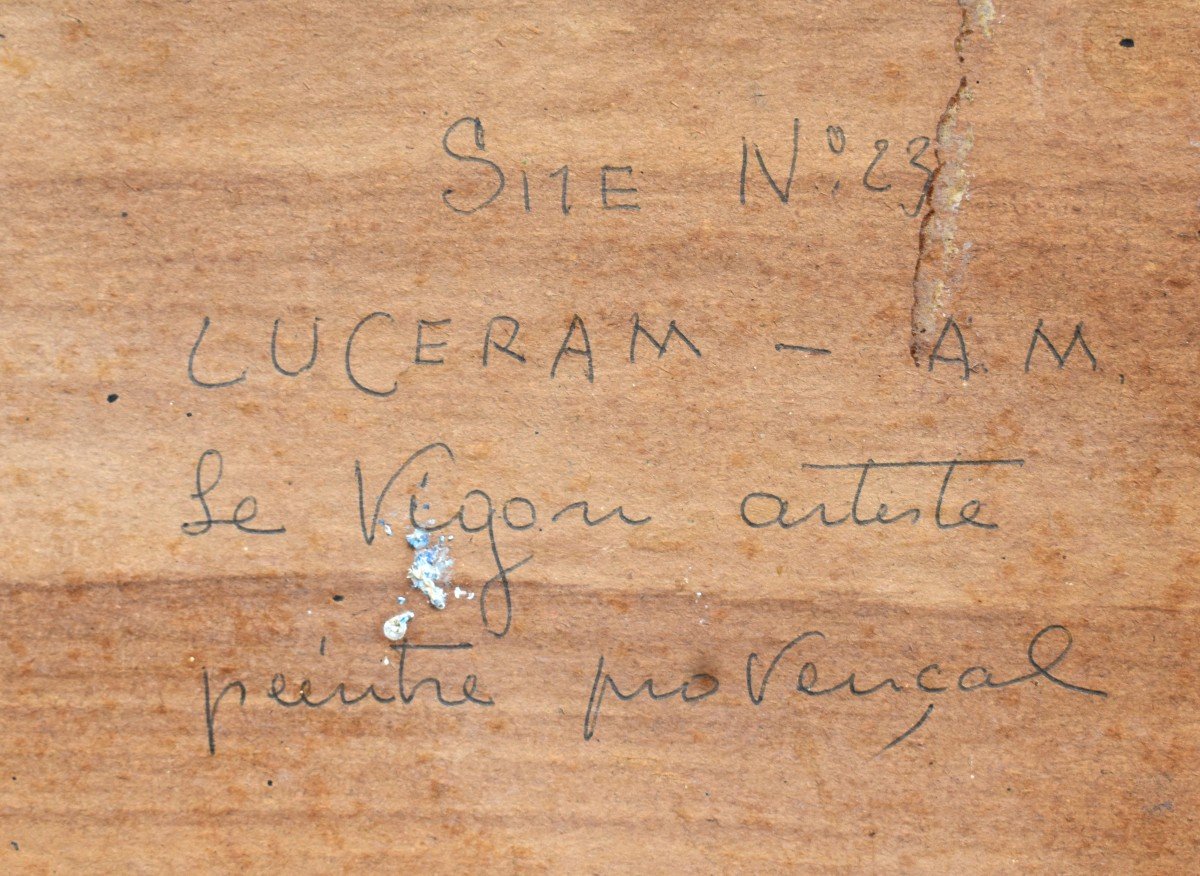 SITE N°: 23
LUCERAM - A.M.
Le Vigon artiste
peintre provençal